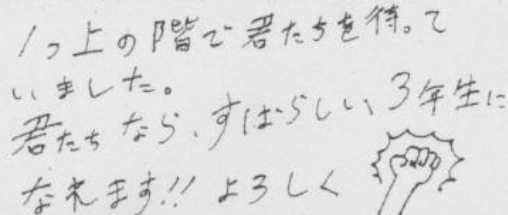 1つ上の階で君たちを待って
いました。
君たちなら、すばらしい、3年生に
なれます!! よろしく